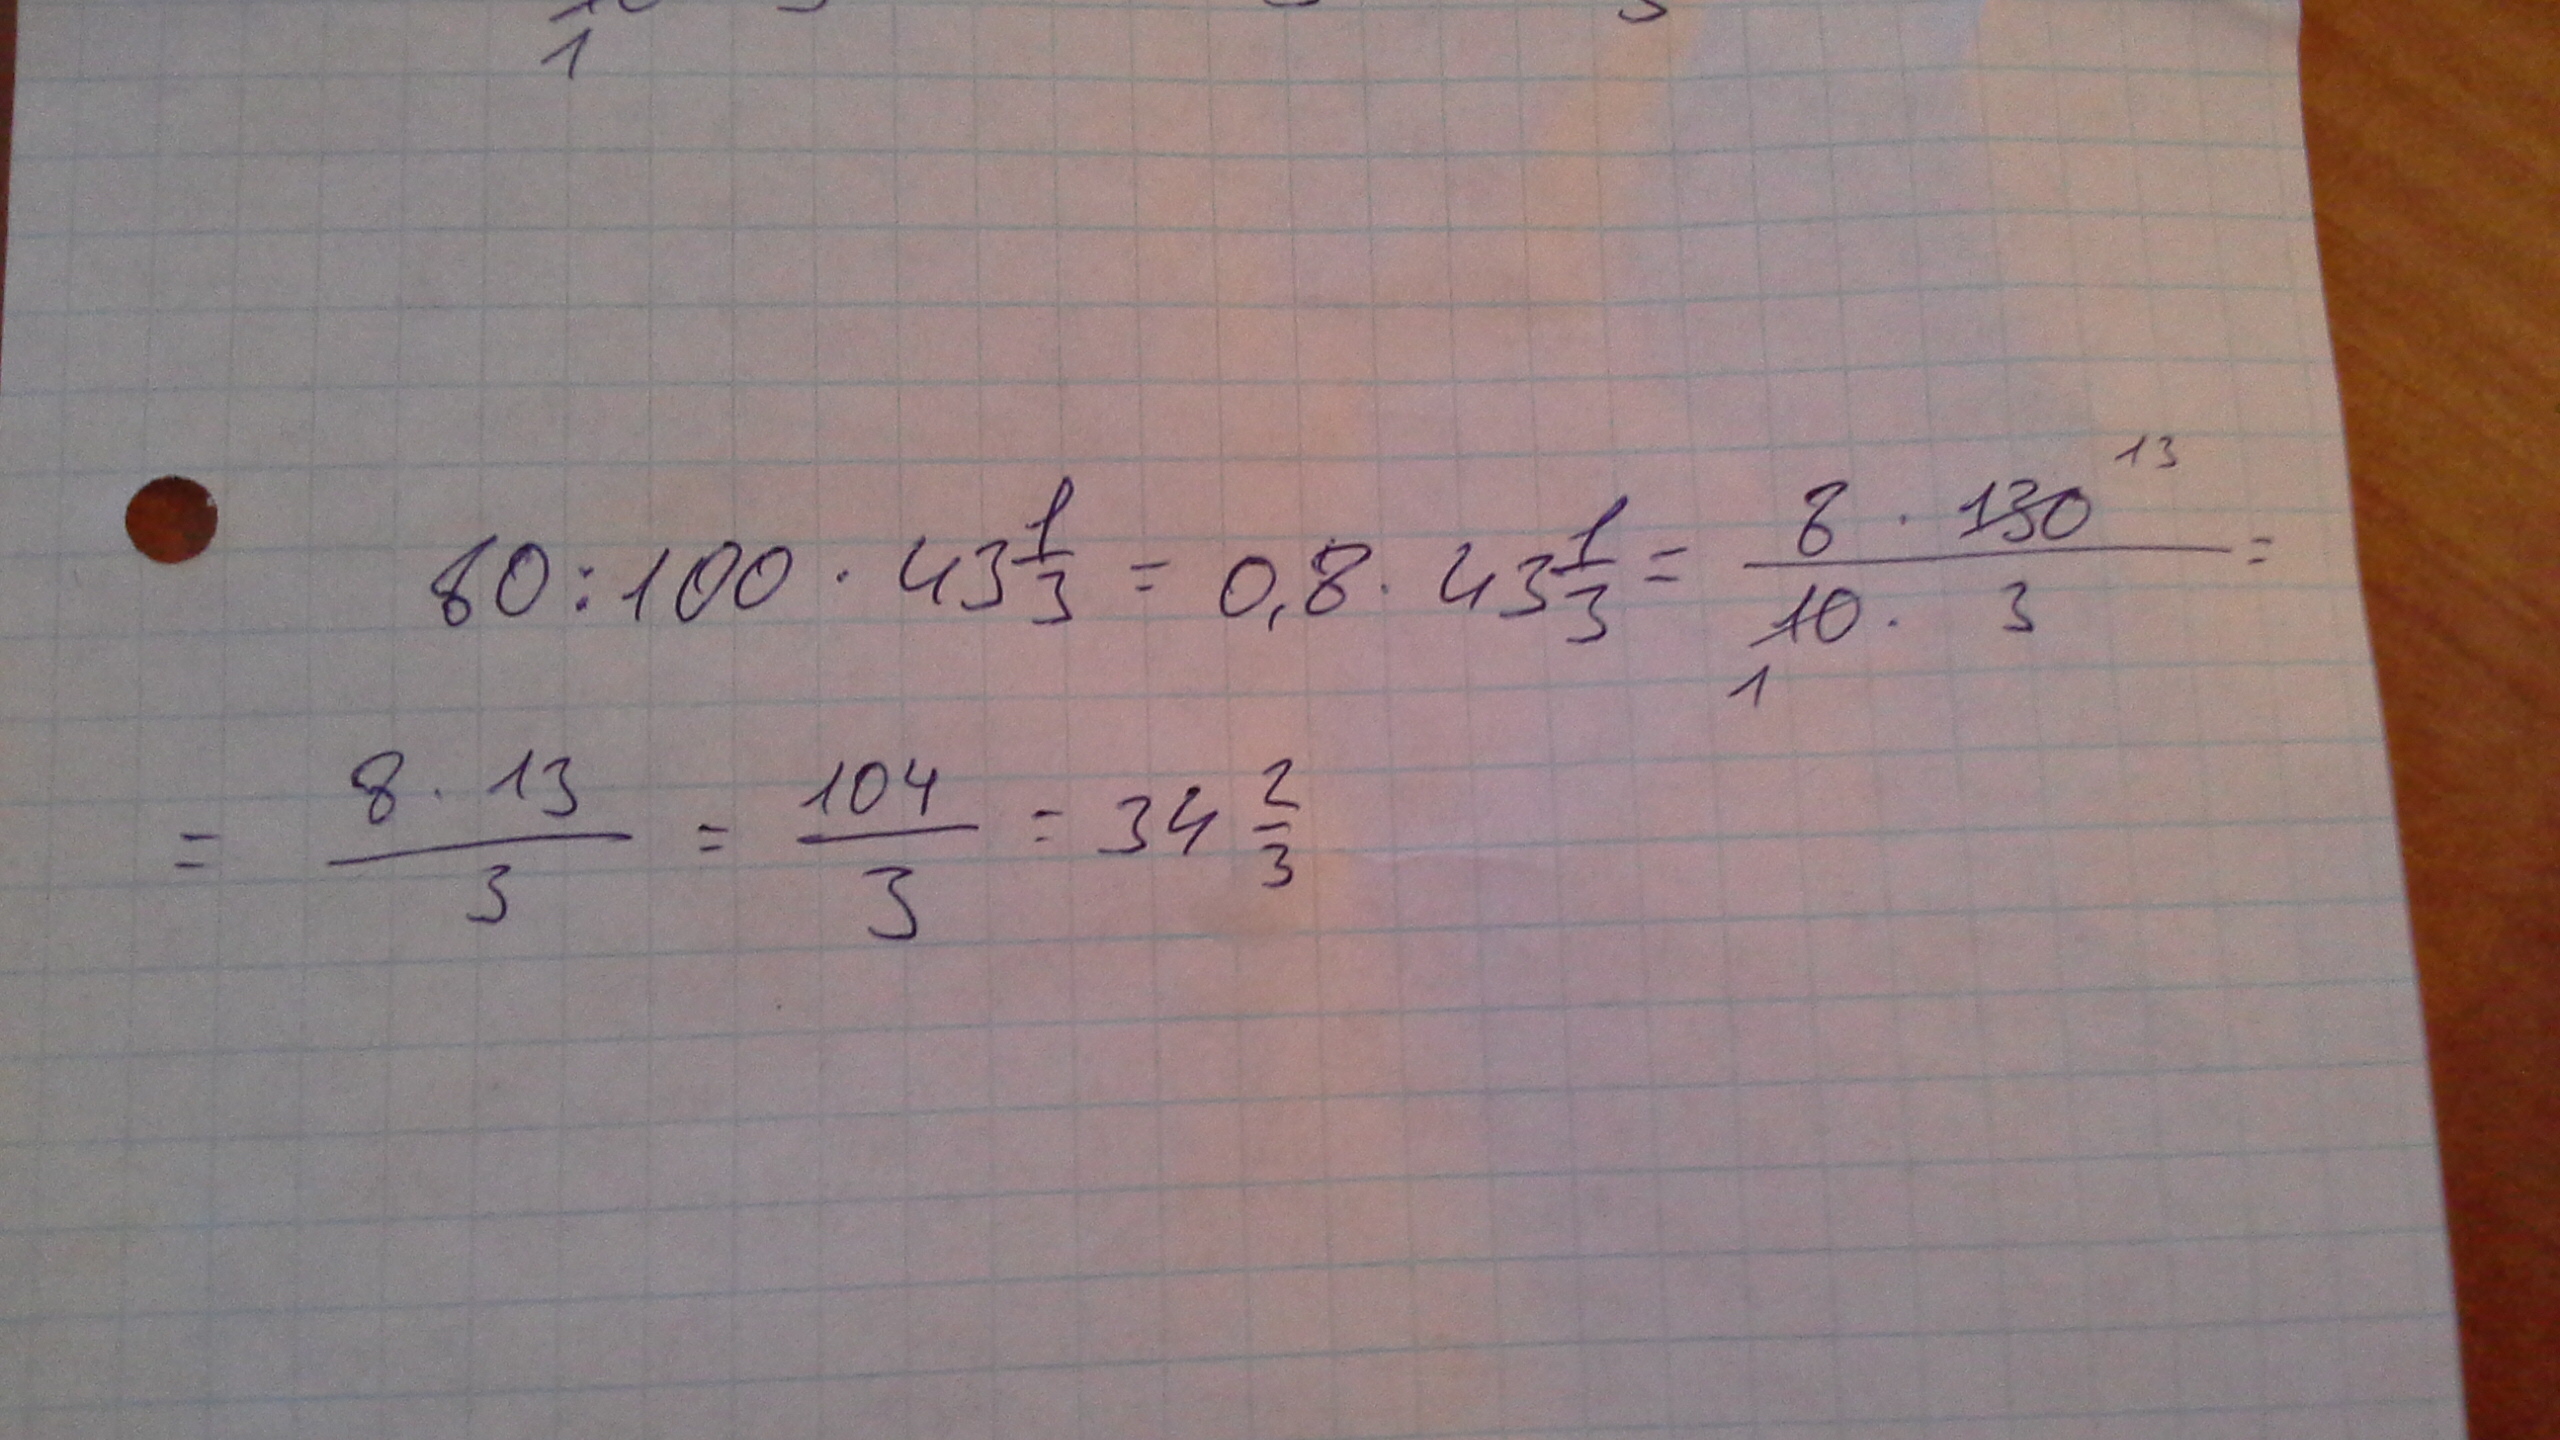 1
80:100 · 43 1/3 = 0,8 · 43 1/3 = (8 · 130 13)/(10 · 3 1) =
= (8 · 13)/3 = 104/3 = 34 2/3